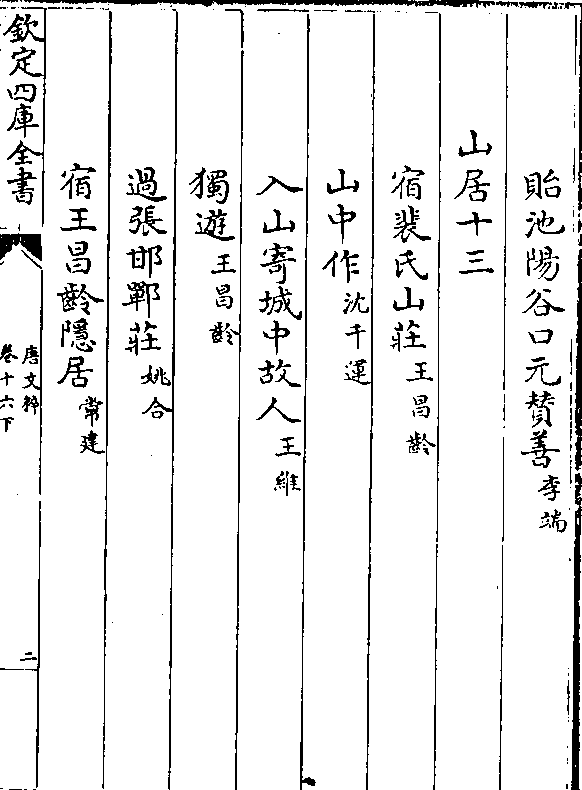 貽池陽谷口元賛善李端
山居十三
宿裴氏山莊王昌齡
山中作沈千運
入山寄城中故人王維
獨遊王昌齡
過張邯鄲莊姚合
宿王昌齡隱居常建
欽定四庫全書
唐文粹
卷十六下
二